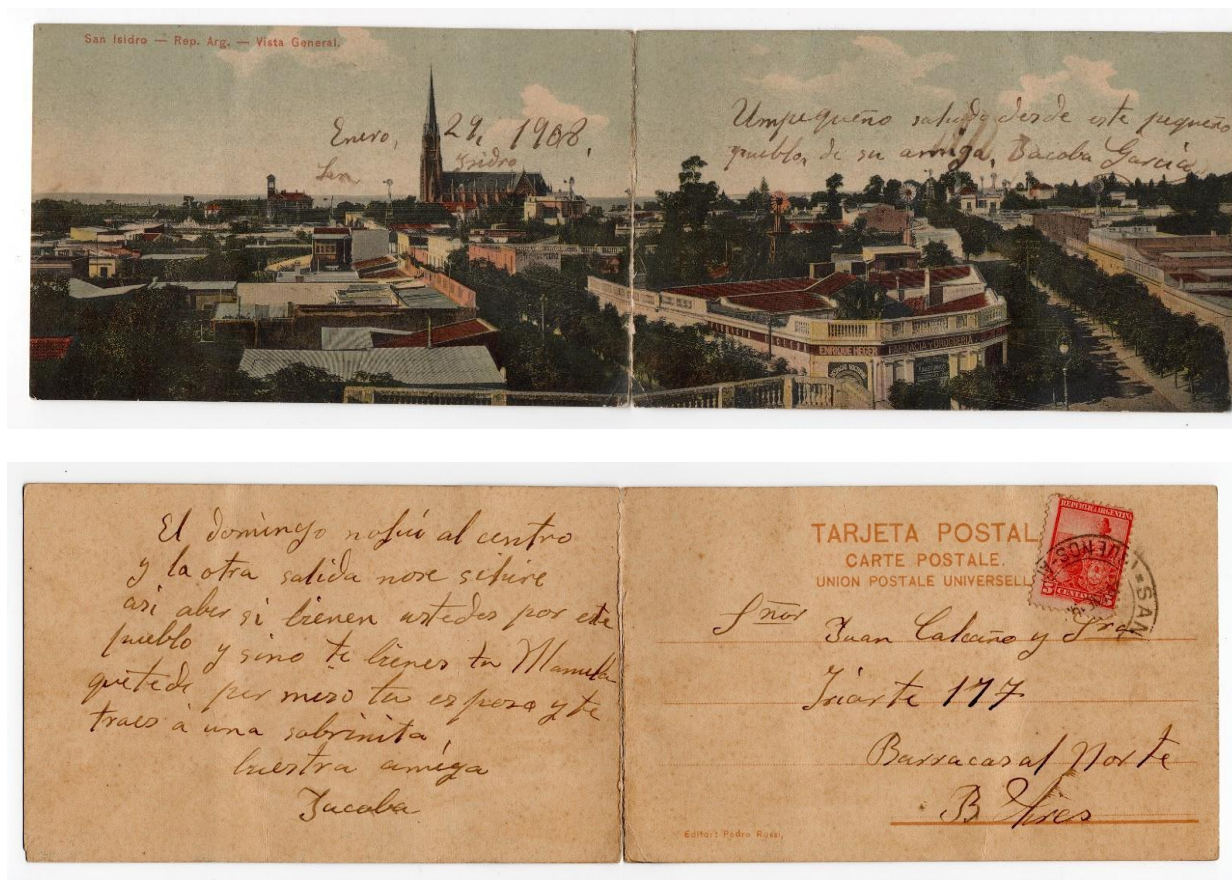 San Isidro — Rep. Arg. — Vista General.
Enero, 29, 1908,
San Isidro
Umpequeño saludo desde este pequeño
pueblo, de su amiga, Bacoba García
ENRIQUE FARMACIA Y DROGUERIA
El domingo nofui al centro
y la otra salida nose sihire
asi aber si bienen ustedes por este
pueblo y sino te bienes tu Manuela
quetede permiso tu esposo y te
traes à una sobrinita,
buestra amiga
Jacoba
TARJETA POSTAL
CARTE POSTALE.
UNION POSTALE UNIVERSELLE
REPUBLICA ARGENTINA
5 CENTAVOS 5
SAN
BUENOS
Sñor Juan Calcaño y Sra
Iriarte 177
Barracasal Norte
B Aires
Editor: Pedro Rossi,